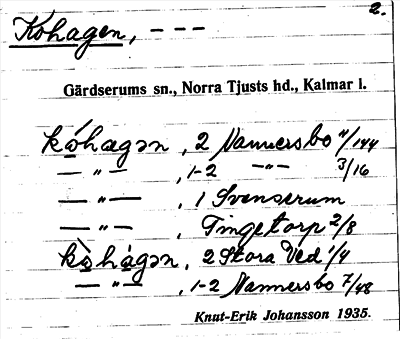 2.
Kohagen, - - -
Gärdserums sn., Norra Tjusts hd., Kalmar l.
kóhagən, 2 Nannersbo 11/144
— " —, 1-2 — " — 3/16
— " —, 1 Svenserum
— " —, Tingetorp 2/8
kòhágən, 2 Stora Ved 1/4
— " —, 1-2 Nannersbo 7/48
Knut-Erik Johansson 1935.